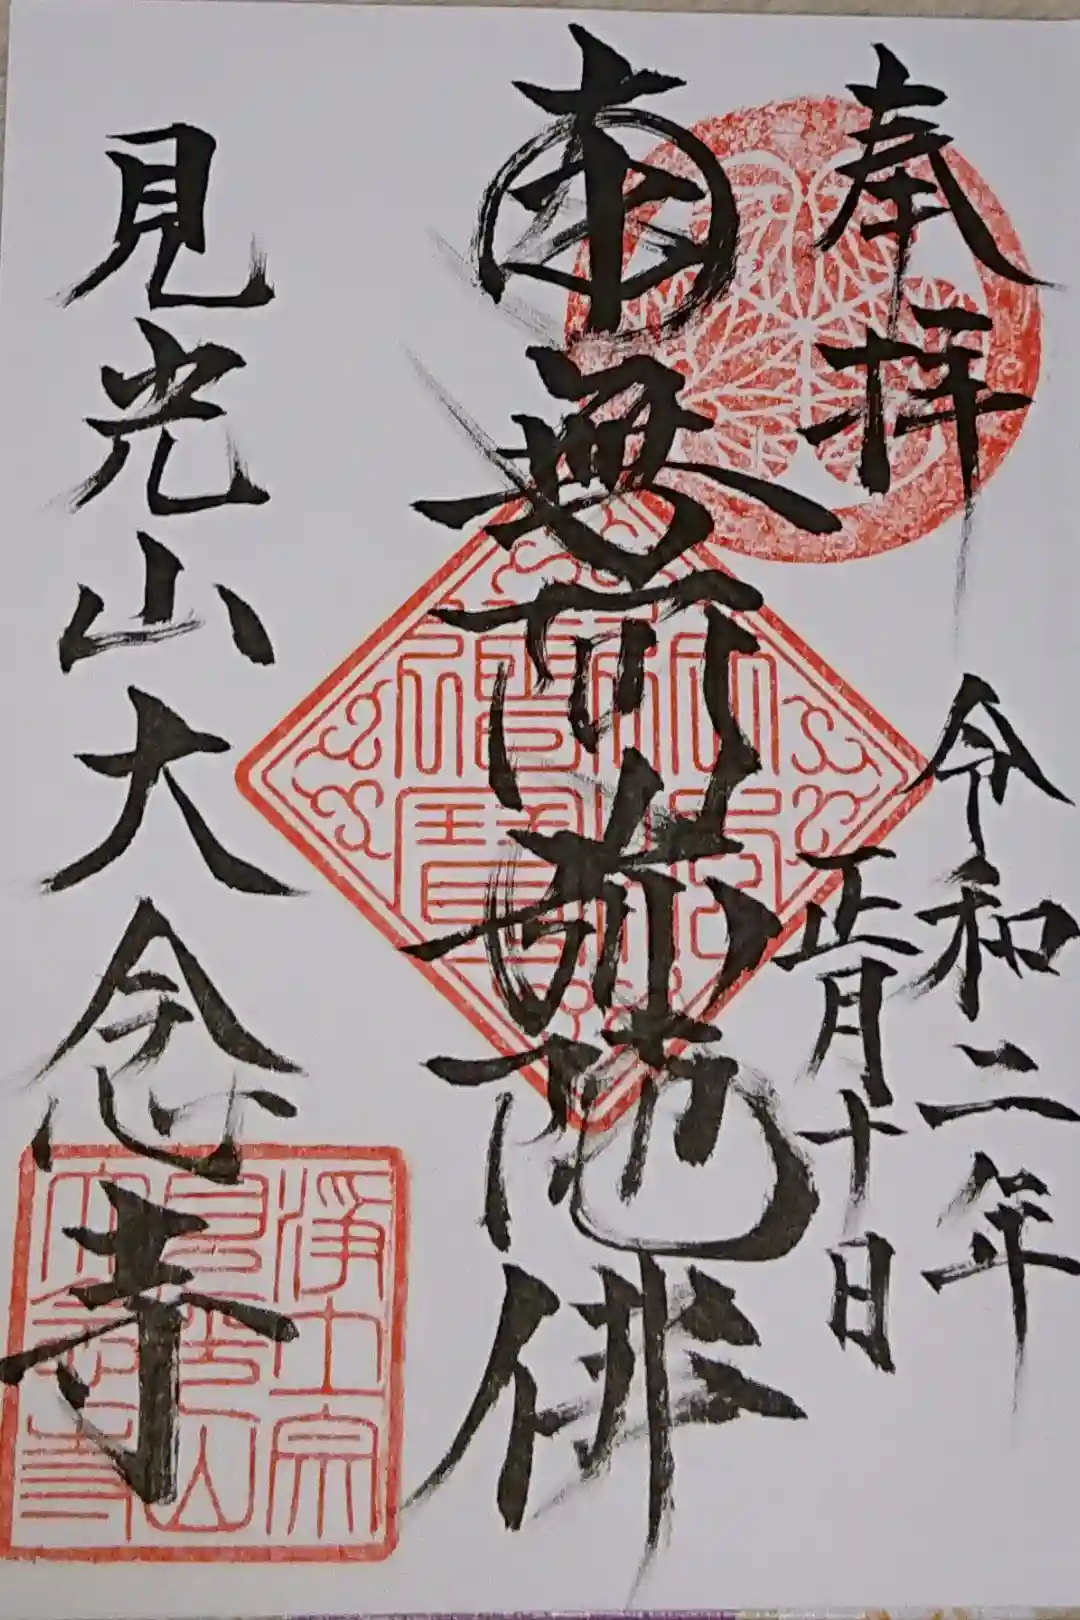 奉拝
令和二年
正月十日
南無阿弥陀佛
見光山大念寺
佛法僧寳
浄土宗
見光山
大念寺